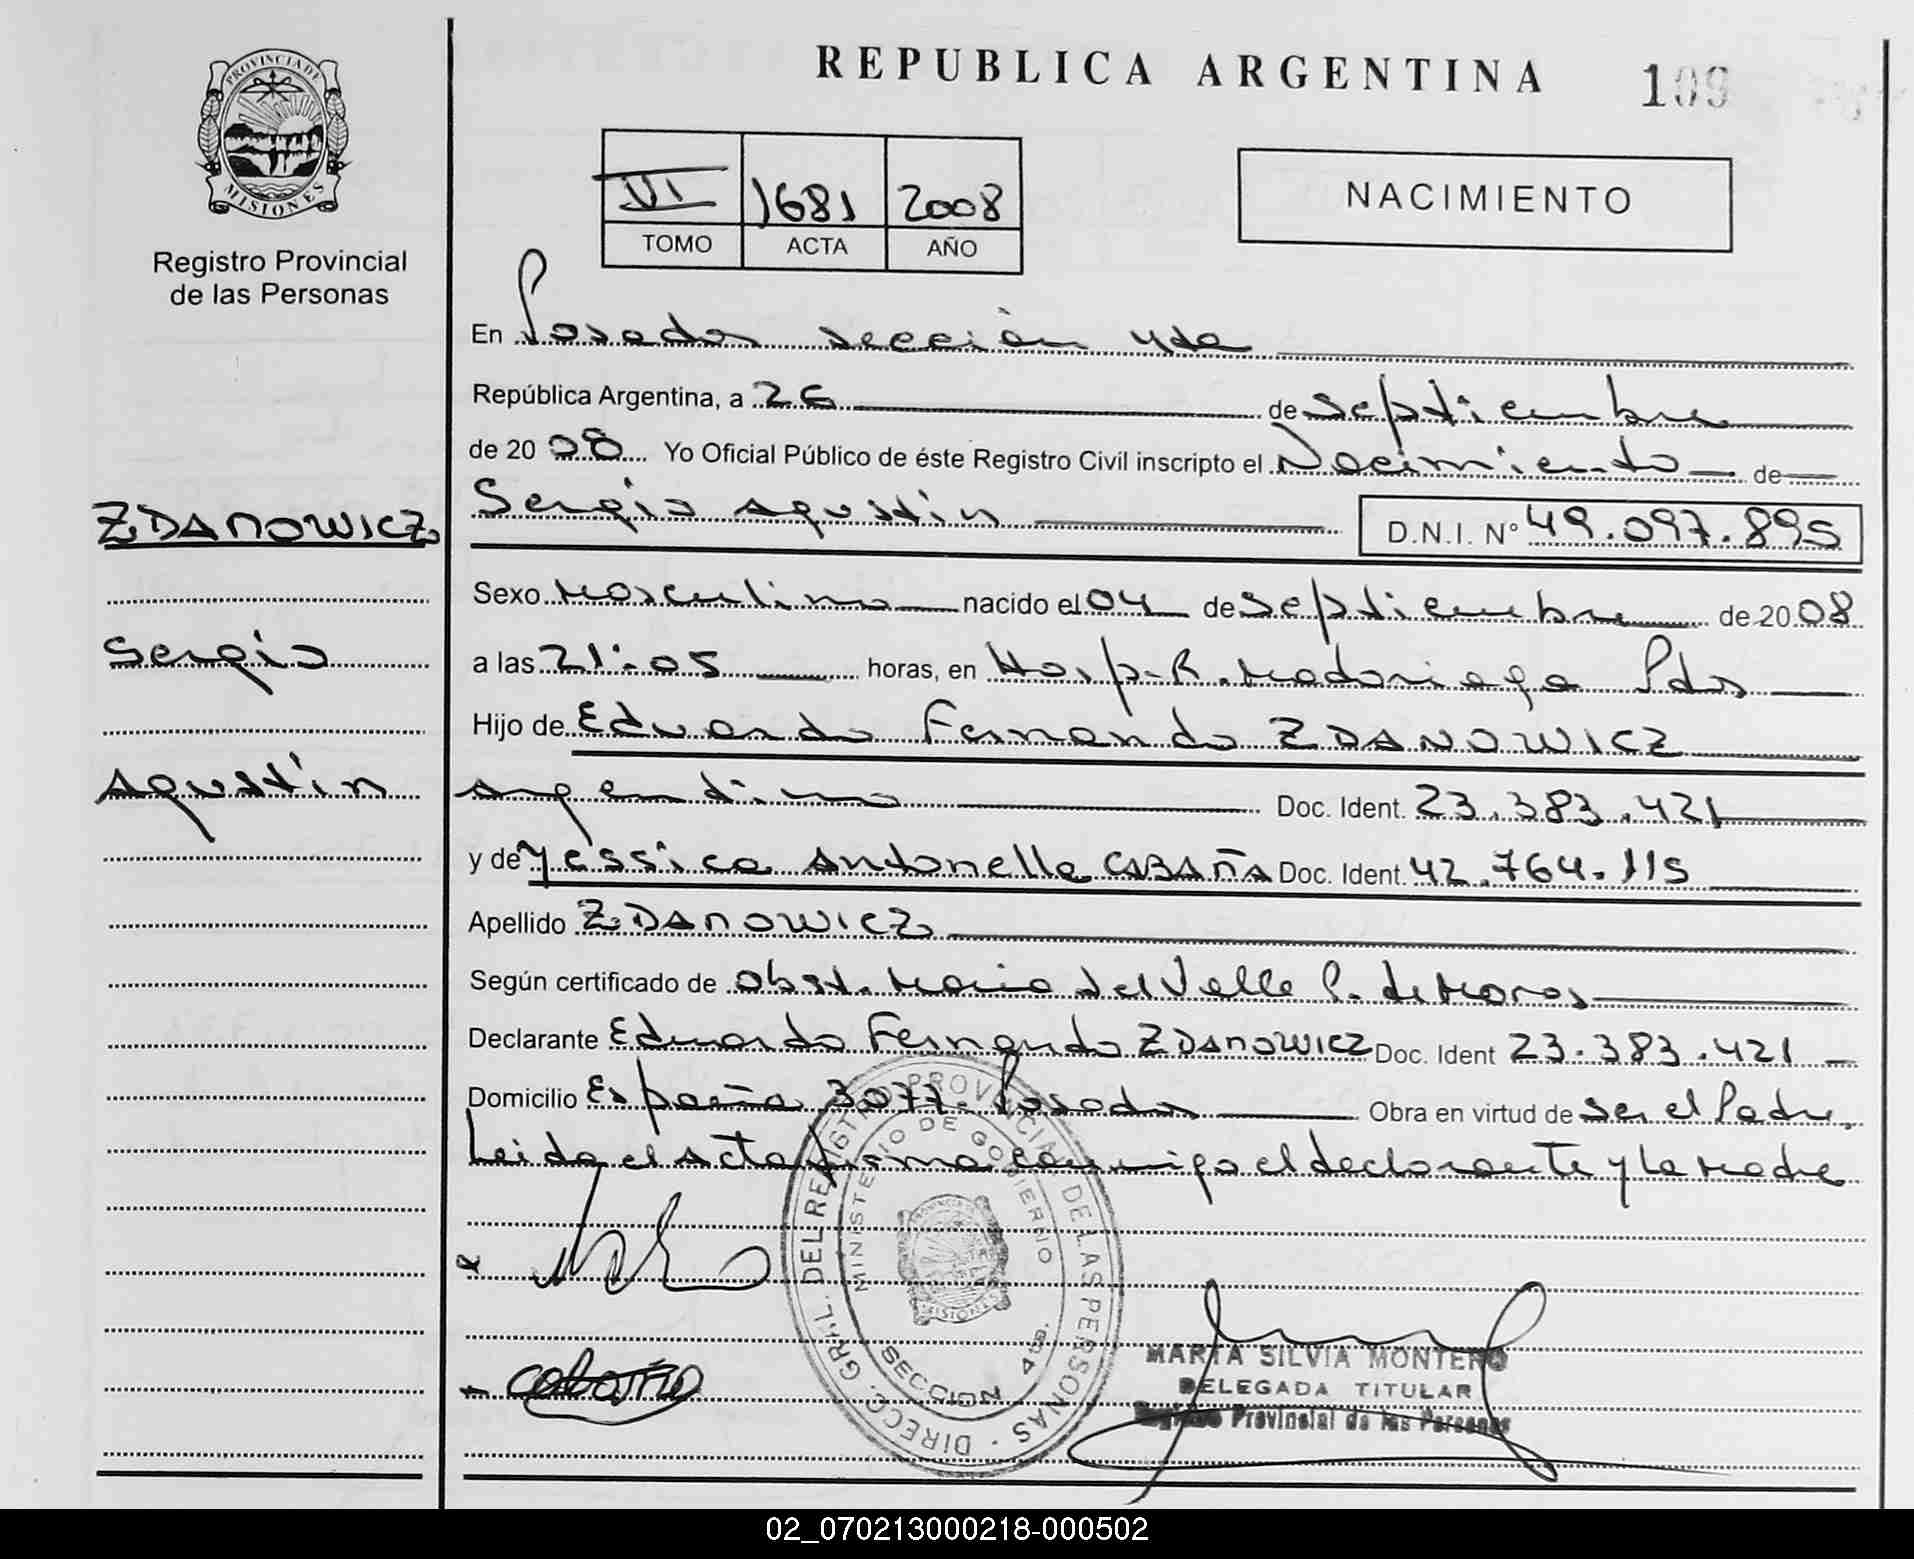 PROVINCIA DE
MISIONES
Registro Provincial
de las Personas
REPUBLICA ARGENTINA 109
VI 1681 2008
TOMO ACTA AÑO
NACIMIENTO
En Posadas sección 4ta
República Argentina, a 26 de Septiembre
de 2008 Yo Oficial Público de éste Registro Civil inscripto el Nacimiento de
Sergio Agustín D.N.I. Nº 49.097.895
ZDANOWICZ
Sergio
Agustín
Sexo Masculino nacido el 04 de Septiembre de 2008
a las 21:05 horas, en Hosp. R. Madariaga Pdas
Hijo de Eduardo Fernando ZDANOWICZ
Argentino Doc. Ident. 23.383.421
y de Yessica Antonella CABAÑA Doc. Ident. 42.764.115
Apellido ZDANOWICZ
Según certificado de Obst. Maria del Valle P. de Moras
Declarante Eduardo Fernando ZDANOWICZ Doc. Ident 23.383.421
Domicilio España 3077 Posadas Obra en virtud de ser el Padre,
Leida el Acta firma conmigo el declarante y la Madre
DIRECC. GRAL. DEL REGISTRO PROVINCIAL DE LAS PERSONAS
MINISTERIO DE GOBIERNO
SECCION 4ta.
MISIONES
MARTA SILVIA MONTERO
DELEGADA TITULAR
Registro Provincial de las Personas
02_070213000218-000502